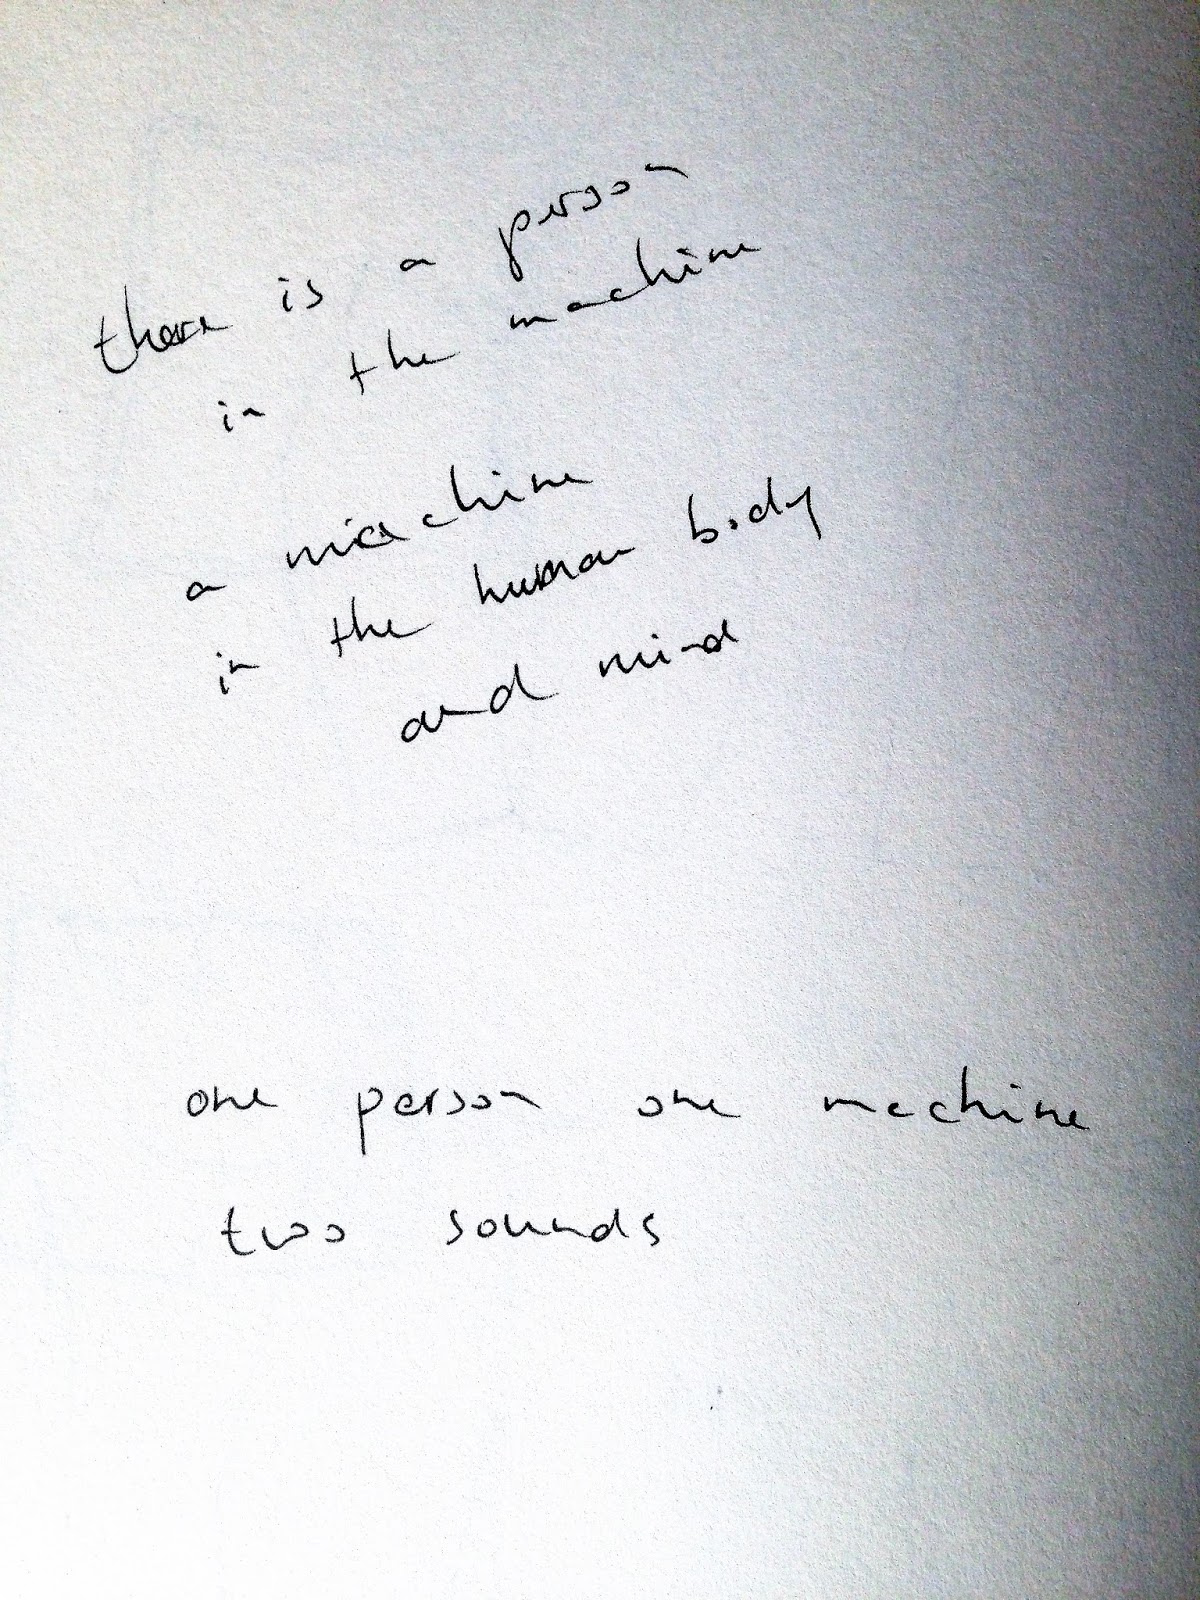 there is a person
in the machine
a machine
in the human body
and mind
one person one machine
two sounds